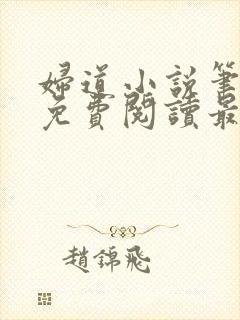 婦道小說筆
免費閱讀最
趙錦飛